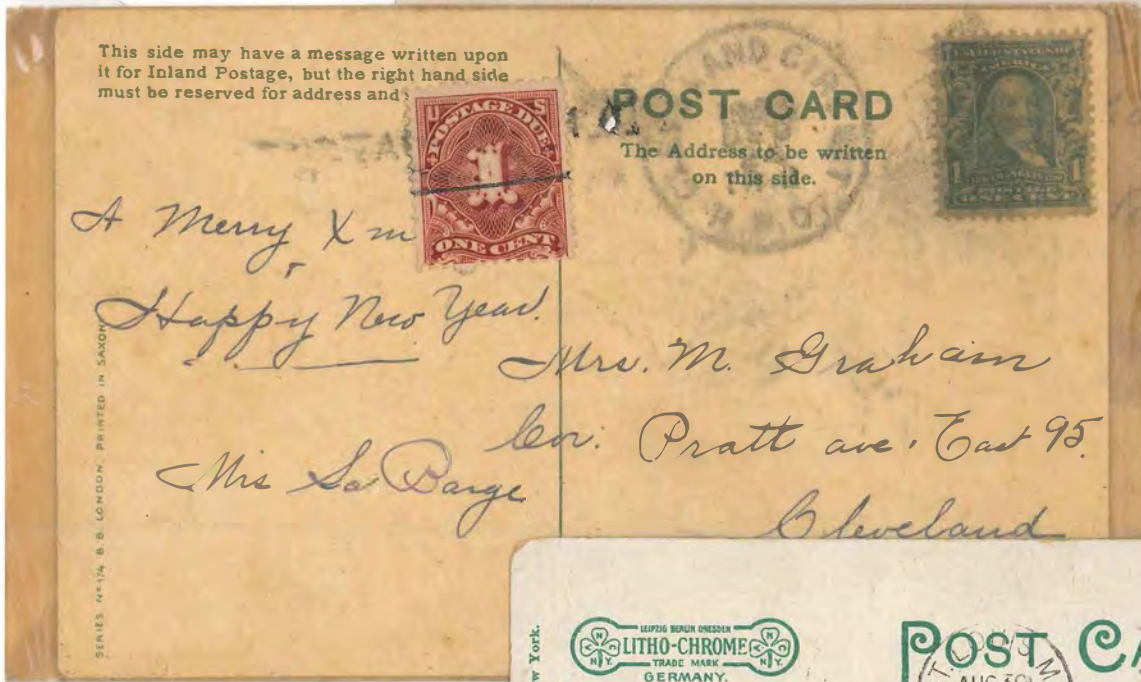 This side may have a message written upon
it for Inland Postage, but the right hand side
must be reserved for address and
POST CARD
The Address to be written
on this side.
U S
POSTAGE DUE
1
ONE CENT
1 1
POSTAGE
ONE CENT
A Merry Xm
Happy New Year.
Mrs La Barge
Mrs. M. Graham
Cor: Pratt ave. East 95.
Cleveland
SERIES No 174 B. B. LONDON. PRINTED IN SAXON
w York.
LEIPZIG BERLIN DRESDEN
LITHO-CHROME
TRADE MARK
GERMANY.
N Y.
POST CA
T. LOUIS. M
AUG 30